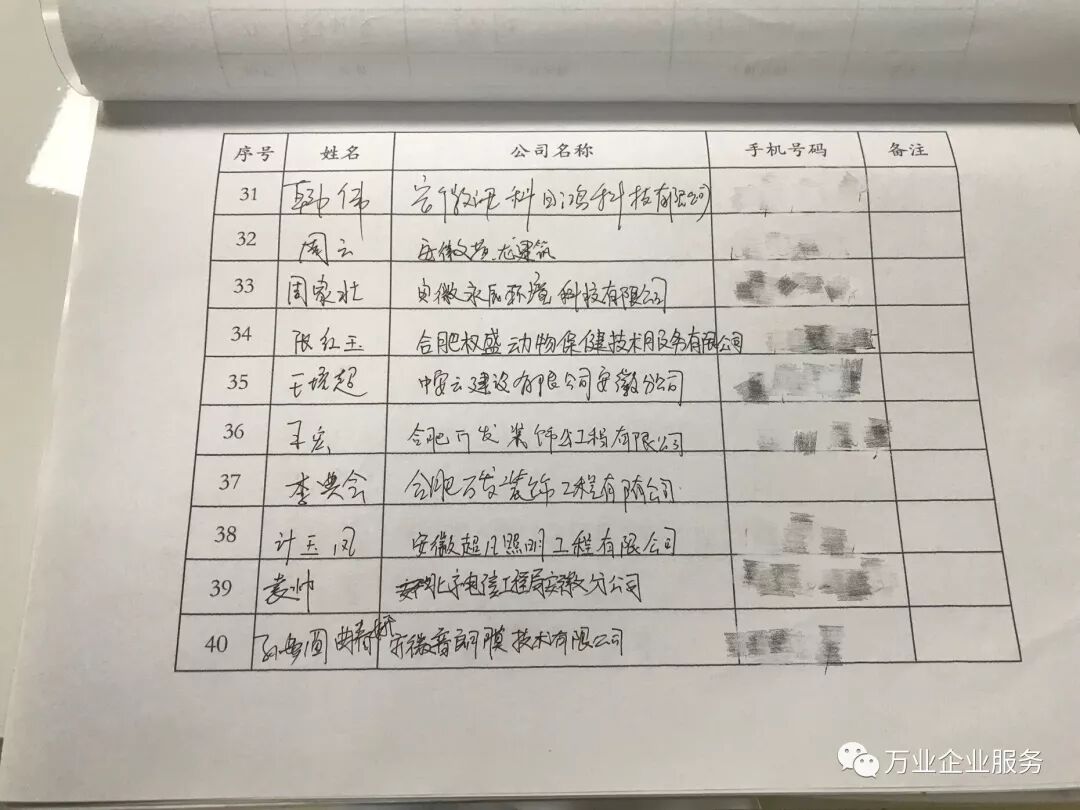 序号 姓名 公司名称 手机号码 备注
31 韩伟 安徽 科 科技有限公司
32 周云 安徽 龙建筑
33 周家壮 安徽永 环境科技有限公司
34 张红玉 合肥权盛动物保健技术服务有限公司
35 王 超 中安云建设有限公司安徽分公司
36 王宏 合肥 发装饰工程有限公司
37 李典会 合肥万发装饰工程有限公司
38 计玉凤 安徽超凡照明工程有限公司
39 袁帅 北京电信工程局安徽分公司
40 孙 圆 曲春 安徽普朗膜技术有限公司
万业企业服务